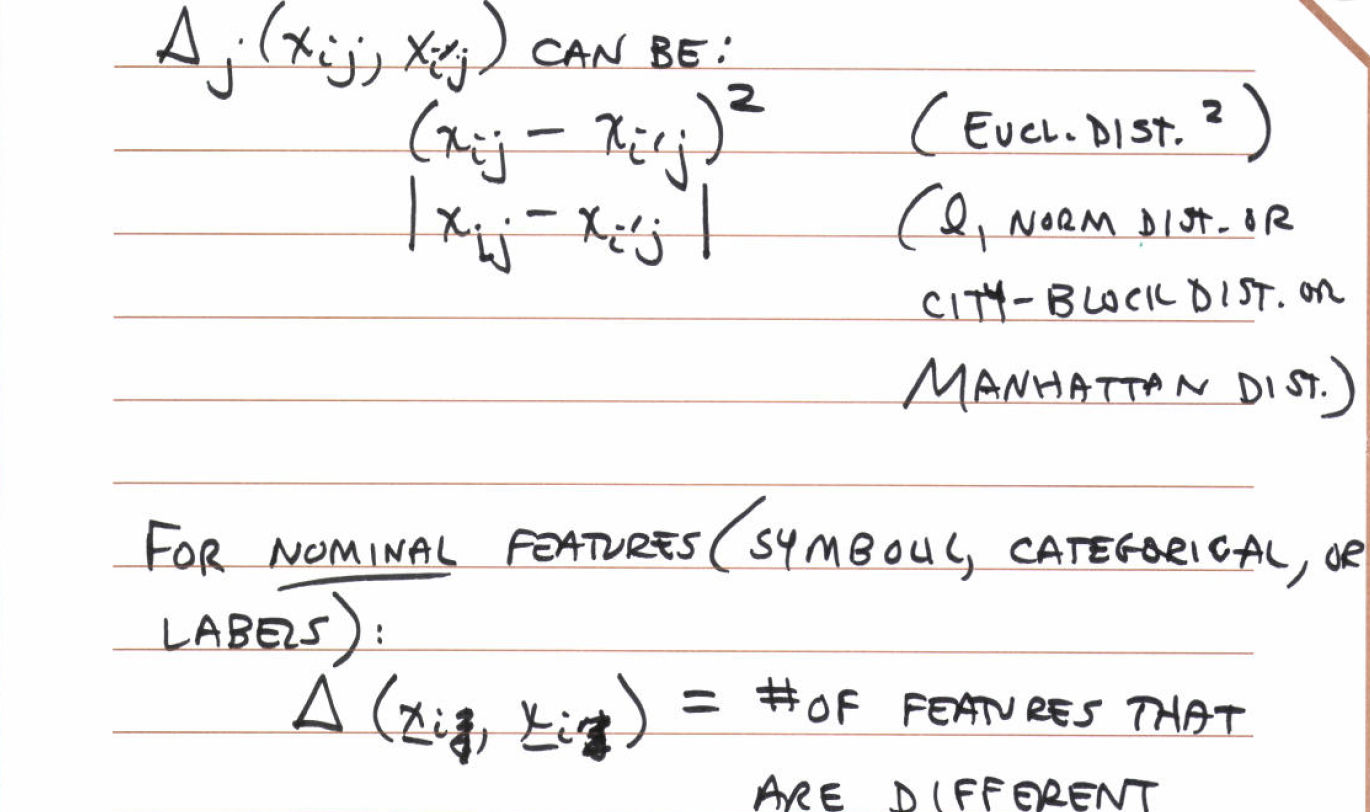 Δj(xij, xi'j) CAN BE:
(xij − xi'j)² (EUCL. DIST.²)
|xij − xi'j| (l₁ NORM DIST. OR
CITY-BLOCK DIST. OR
MANHATTAN DIST.)
FOR NOMINAL FEATURES (SYMBOLIC, CATEGORICAL, OR
LABELS):
Δ(xi, xi') = # OF FEATURES THAT
ARE DIFFERENT